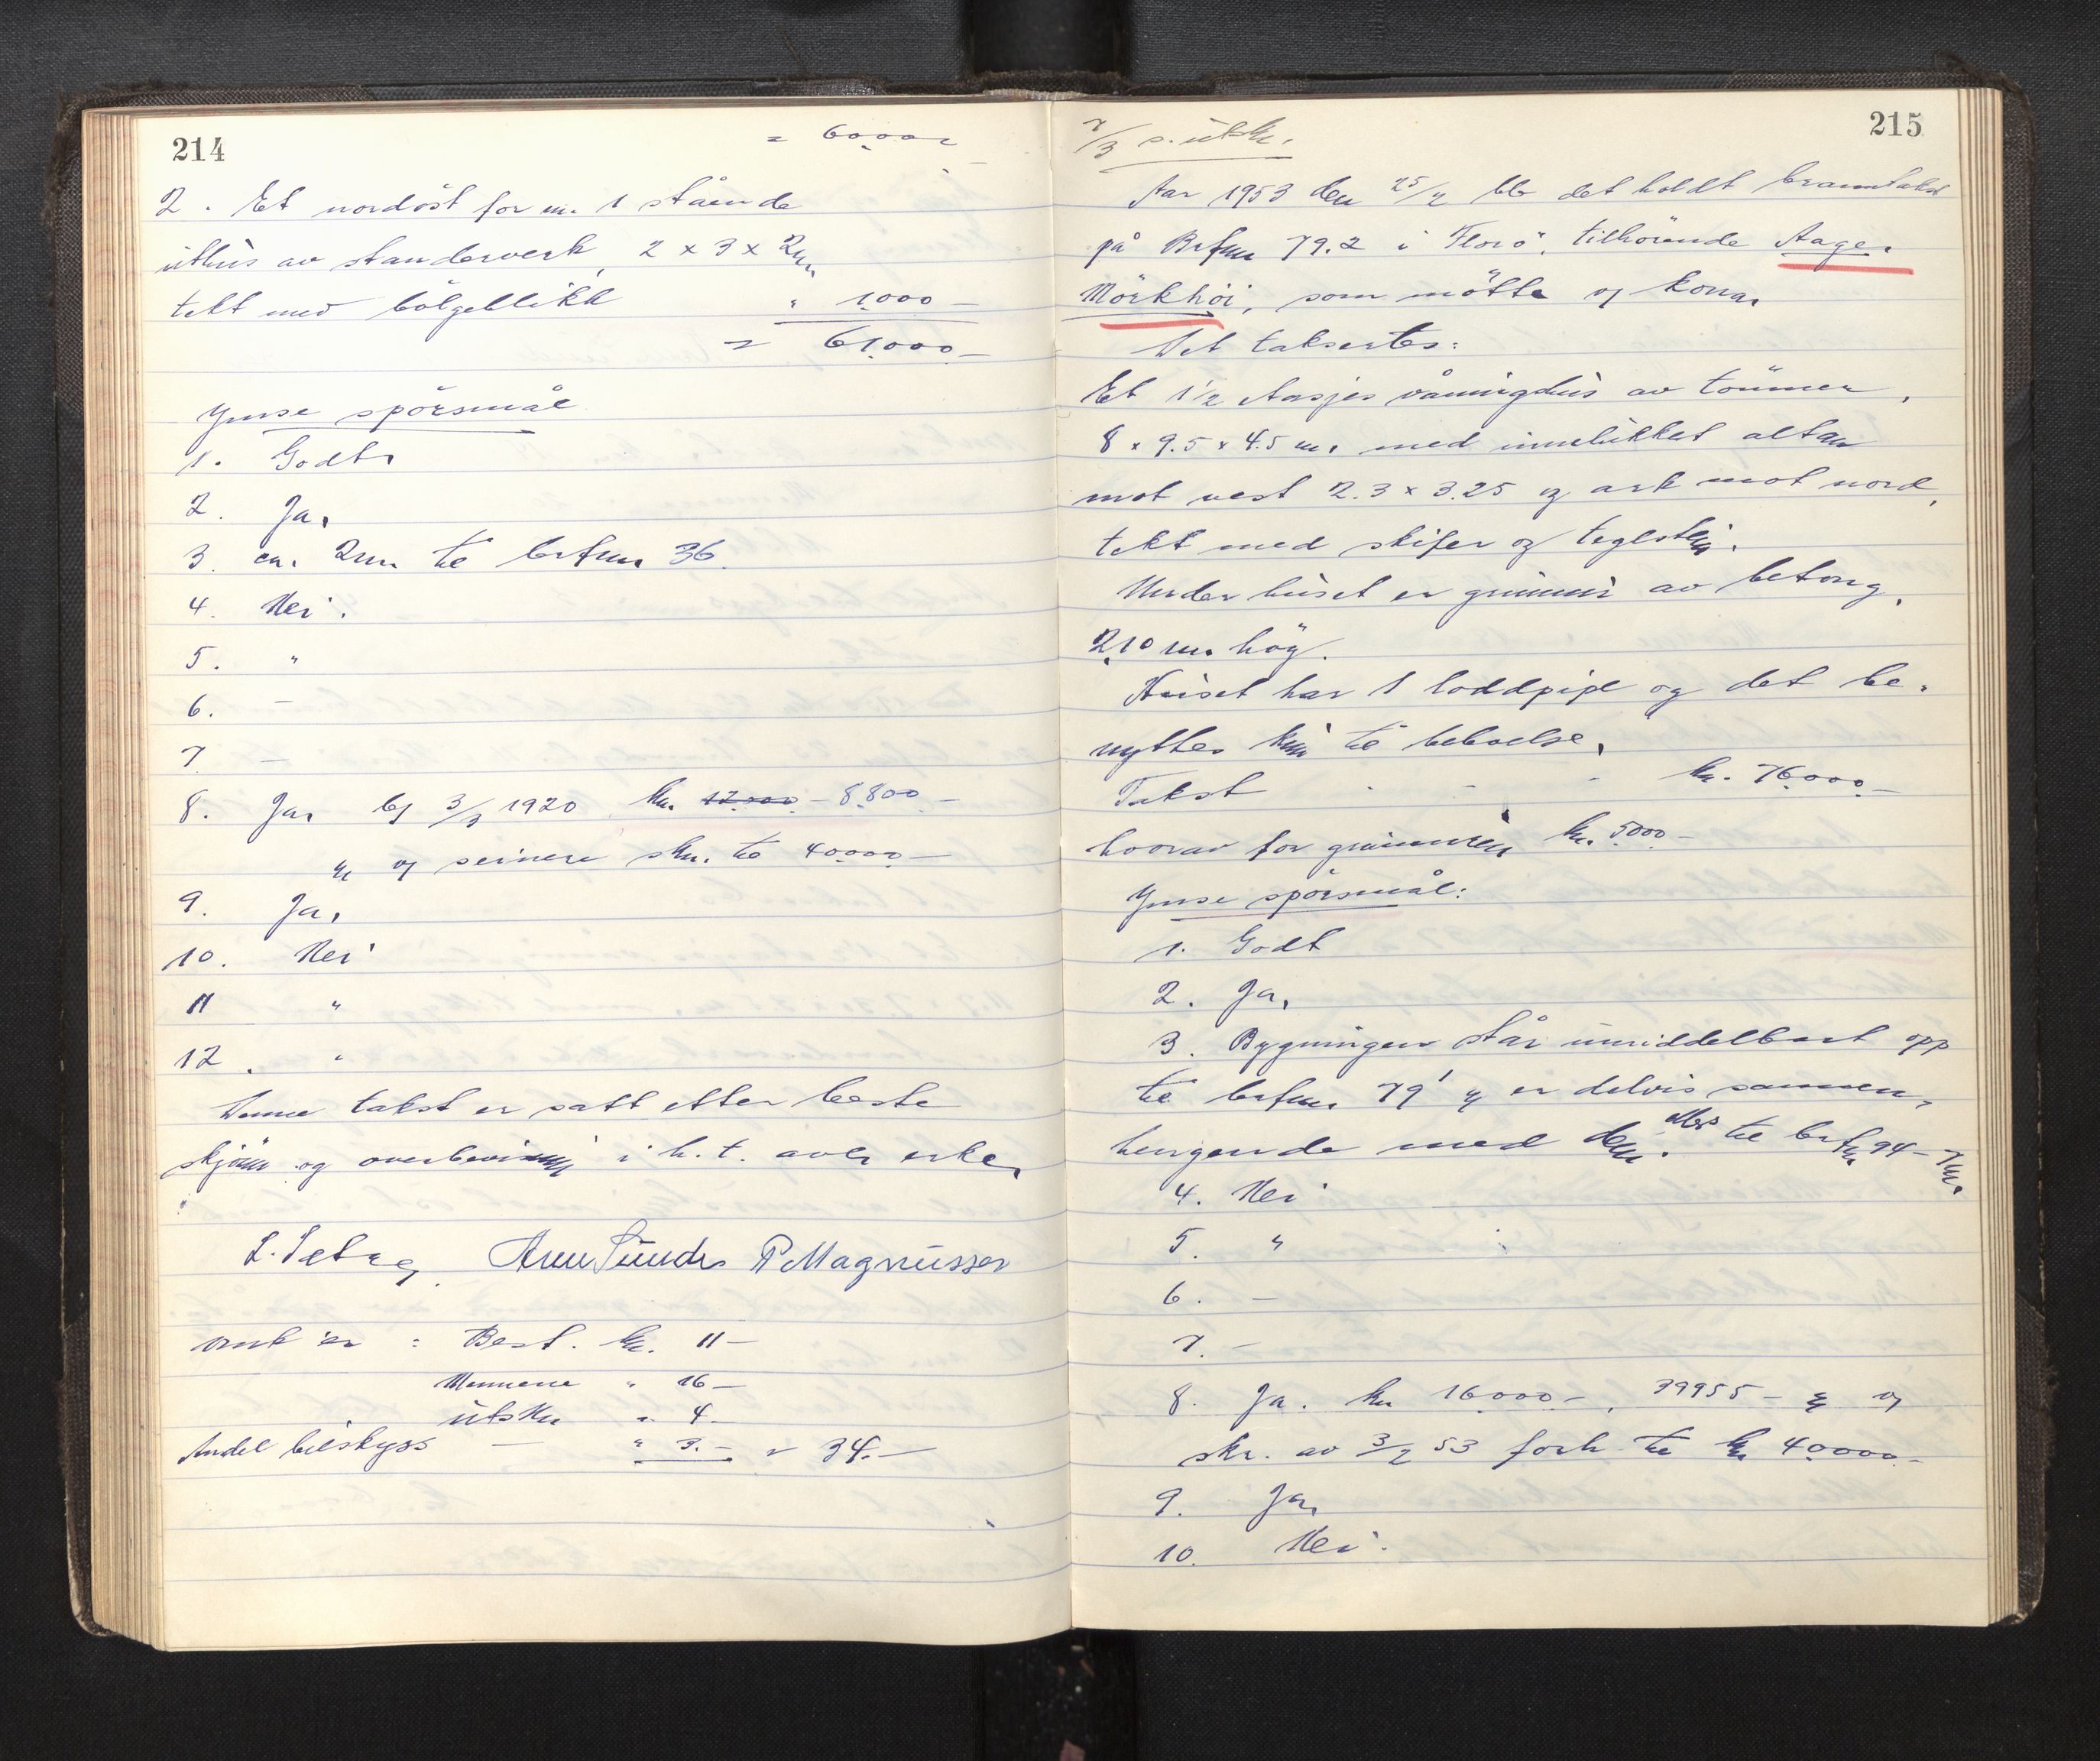 214
= 60.000
2. Et nordöst for nr. 1 stående
uthus av standerverk, 2 x 3 x 2 m.
tekt med bölgeblikk " 1.000 -
= 61.000 -
Ymse spörsmål
1. Godt.
2. Ja.
3. ca. 2 m. til brfnr. 36.
4. Nei.
5. "
6. -
7. -
8. Ja, 1920 kr. 12.000 - 8.800 -
og seinere skr. til 40.000 -
9. Ja.
10. Nei
11 "
12. "
Denne takst er satt etter beste
skjönn og overbevisning i h.t. avlagt
Arne Sunde P. Magnussen
Omk er : Best. kr. 11 -
Mennene " 16 -
utskr " 4 -
Andel bilskyss - " 3. - = 34. -
215
7/3 s. utskr.
Aar 1953 den 25/2 ble det holdt branntakst
på Brfnr. 79.2 i Florö, tilhörende Aage
Mörkhöi, som mötte og kona.
Det taksertes:
Et 1 1/2 etasjes våningshus av tömmer,
8 x 9.5 x 4.5 m. med innelukket altan
mot vest 2.3 x 3.25 og ark mot nord,
tekt med skifer og teglstein.
Under huset er grunnmur av betong,
2,10 m. hög.
Huset har 1 loddpipe og det be-
nyttes kun til beboelse.
Takst - - - kr. 76.000 -
hvorav for grunnmuren kr. 5000 -
Ymse spörsmål:
1. Godt
2. Ja.
3. Bygningen står umiddelbart opp
til brfnr. 79 og er delvis sammen-
hengende med den. Ellers til brfnr 94 - 7 m.
4. Nei
5. "
6. -
7. -
8. Ja. kr 16.000 -, 39955 - og
skr. av 3/2 53 forh. til kr 40.000 -
9. Ja.
10. Nei.